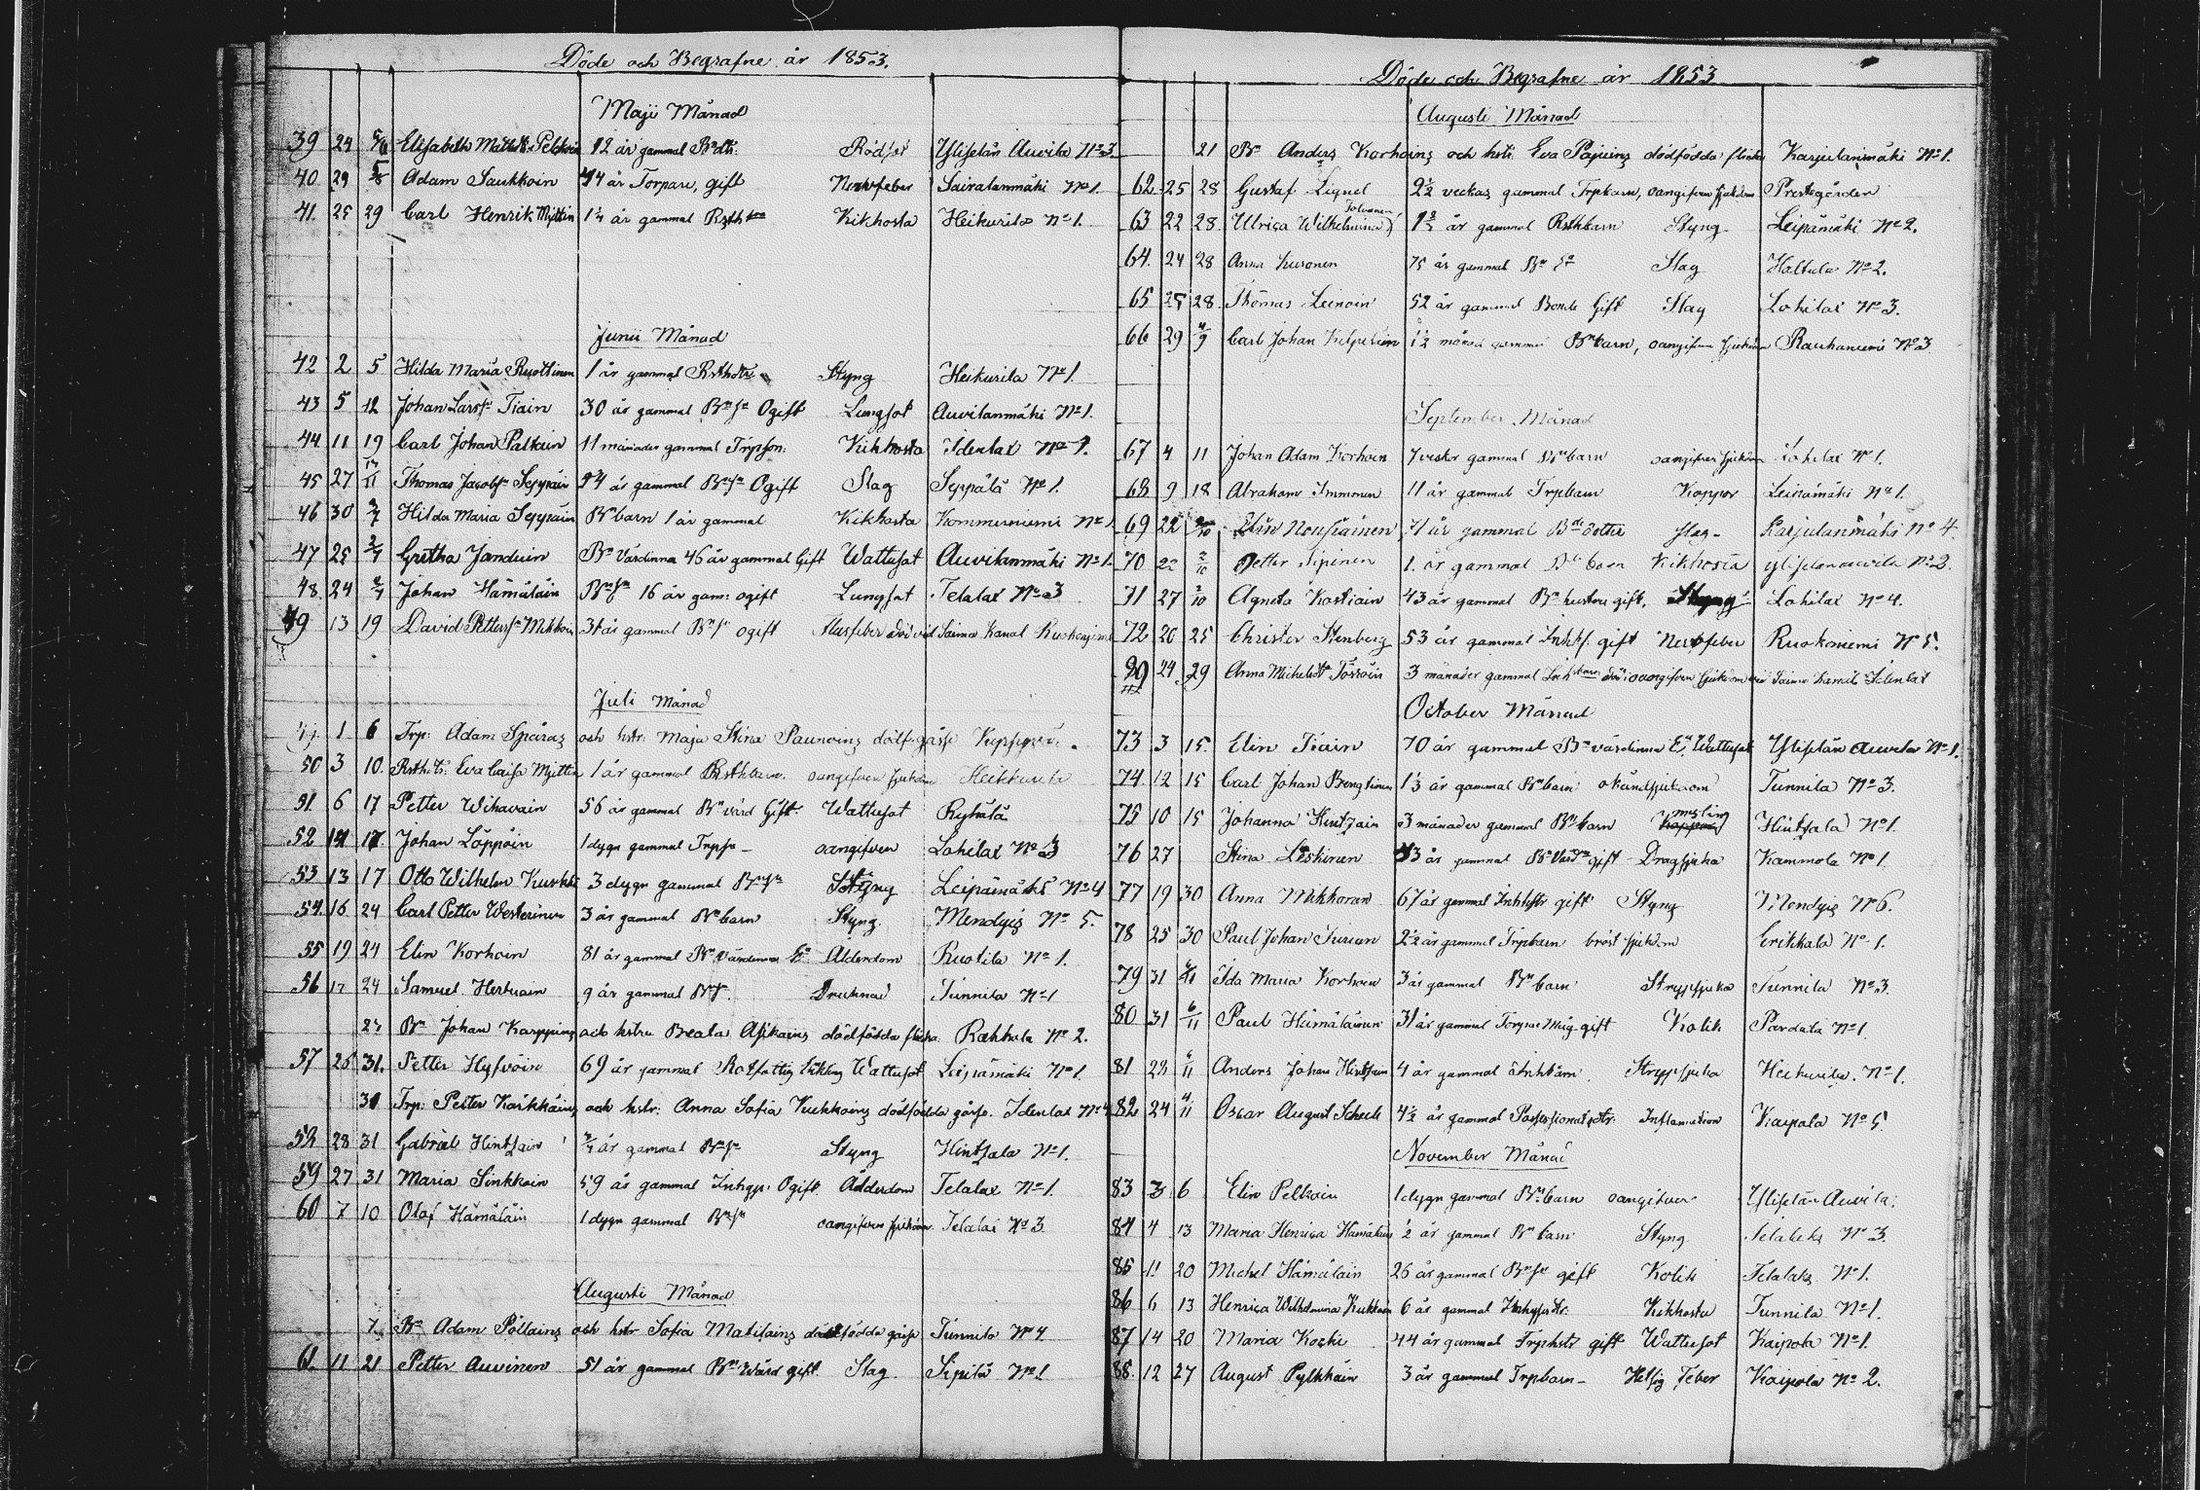 Döde och Begrafne år 1853.
Maji Månad
39 24 5/6 Elisabeth 12 år gammal Rödsot Ylispään Auvila No 3.
40 29 5/6 Adam Saukkoin 44 år Torpare, gift Nervfeber Sairalanmäki No 1.
41. 25 29 Carl Henrik Myttin 1 1/4 år gammal Kikhosta Heikurila No 1.
Junii Månad
42 2 5 Hilda Maria Ruottinen 1 år gammal Styng Heikurila No 1.
43 5 12 Johan Larss Tiain 30 år gammal Ogift Lungsot Auvilanmäki No 1.
44 11 19 Carl Johan Patkain 11 månader gammal Trpson: Kikhosta Idenlax No 1.
45 27 Thomas Jacobss Seppäin 24 år gammal Ogift Slag Seppälä No 1.
46 30 3/7 Hilda Maria Seppäin Bn barn 1 år gammal Kikhosta Kommerniemi No 1
47 25 3/7 Gretha Janduin Bn Värdinna 46 år gammal Gift Wattusot Auvilanmäki No 1.
48. 24 Johan Hämäläin 16 år gam: ogift Lungsot Telalax No 3
49 13 19 David Petterss Mikkoin 31 år gammal ogift dödd vid Saima Kanal
Juli Månad
1 6 Trp: Adam Spåraz och hstr: Maja Stina Paunoins dödf. gåsse
50 3 10. Eva Caisa Myttin 1 år gammal oangifven sjukdom Heikkurila
51. 6 17 Petter Wihavain 56 år gammal Bn värd Gift. Wattusot Ryhälä
52 14 17. Johan Löppöin 1 dygn gammal oangifven Lohilax No 3
53 13 17 Otto Wilhelm 3 dygn gammal Styng Leipämäki No 4
54. 16 24 Carl Petter Westerinen 3 år gammal Bn barn Styng. Mendyis No 5.
55 19 24 Elin Korhoin 81 år gammal Bn Värdinna Ålderdom Ruotila No 1.
56 17 24 Samuel 9 år gammal Drucknad Tunnila No 1
Bn Johan Karppins och hstru Beata Asikains dödfödda flicka. No 2.
57 26 31. Petter Hyfvöin 69 år gammal Wattusot Leipämäki No 1.
31 Trp: Petter Kärkkäins och hstr: Anna Sofia Kukkoins dödfödda gåsse. Idenlax No 4
58 28 31 Gabriel Hintsain 3/4 år gammal Styng Hintsala No 1.
59 27 31 Maria Sinkkoin 59 år gammal Inhys: Ogift Ålderdom Telalax No 1.
60 7 10 Olof Hämäläin 1 dygn gammal oangifven sjukdom. Telalax No 3
Augusti Månad
7 Bn Adam Pöllains och hstr Sofia Matilains dödfödda gåsse Tunnila No 4
61. 11 21 Petter Auvinen 51 år gammal Bn Wärd gift. Slag. Sipilä No 1
Döde och Begrafne år 1853
Augusti Månad
21 Bn Anders Korhoins och hstr: Eva dödfödda flicka Karjulanmäki No 1.
62. 25 28 Gustaf Lignel 2 1/2 veckas gammal Trpbarn, oangifven sjukdom Prestegården
63 22 28. Ulrica Wilhelmina Toivanen år gammal Rsthbarn Styng Leipämäki No 2.
64. 24 28 Anna Kuronen 75 år gammal Slag Haltula No 2.
65 25 28. Thomas Leinoin 52 år gammal Bonde Gift Slag Lohilax No 3.
66 29 4/9 Carl Johan 1 1/2 månad gammal Bn barn, oangifven sjukdom Rauhaniemi No 3
September. Månad
67 4 11 Johan Adam Korhoin 7 veckor gammal Bn barn oangifven sjukdom Lohilax No 1.
68 9 18 Abraham Immonen 11 år gammal Trpbarn Koppor Leipämäki No 1.
69 22 Elin Nousiainen 71 år gammal dotter Slag Karjulanmäki No 4.
70 22 2/10 Petter Sipinen 1. år gammal barn Kikhosta Ylispään auvila No 2.
71 27 2/10 Agneta Kostiain 43 år gammal Bn hustru gift, Lohilax No 4.
72 20 25 Christer Stenberg 53 år gammal Inhs. gift Nervfeber Ruokoniemi No 5.
24 29 Anna Michelsdr 3 månader gammal oangifven sjukdom vid Saima Kanal Idenlax
October Månad
73 3 15. Elin Tiain 70 år gammal Bn värdinna Wattusot Ylispään auvila No 1.
74. 12 15 Carl Johan Bengtinen 1 1/3 år gammal Bn barn okändsjukdom Tunnila No 3.
75 10 15 Johanna Hintsain 3 månader gammal Bn barn messling Hintsala No 1.
76 27 Stina Leskinen 33 år gammal gift Dragsjuka Kammola No 1.
77 19 30 Anna Mikkonen 67 år gammal gift Styng Mendyis No 6.
78 25 30 Paul Johan Turun 2 1/2 år gammal Trpbarn bröst sjukdom Erikkala No 1.
79 31 6/11 Ida Maria Korhoin 3 år gammal Bn barn Strypsjuka Tunnila No 3.
80 31 6/11 Paul Hämäläinen 31 år gammal Torpare Måg gift Kolik Pardala No 1.
81 28 6/11 Anders Johan Hintsain 4 år gammal Inhbarn Strypsjuka Heikurila. No 1.
82 24 4/11 Oscar August Scheele 4 1/2 år gammal Inflamation Kaipola No 5.
November Månad
83 3 6 Elin Pelkoin 1 dygn gammal Bn barn oangifven Ylispään Auvila.
84 4 13 Maria Henrica Hämäläin 1/2 år gammal Bn barn Styng Telalaks No 3.
85 11 20 Michel Hämäläin 26 år gammal gift Kolik Telalaks No 1.
86 6 13 Henrica Wilhelmina Kukkoin 6 år gammal Kikhosta Tunnila No 1.
87 14 20 Maria Koski 44 år gammal Trphstr gift Wattusot Kaipola No 1.
88. 12 27 August Pylkkäin 3 år gammal Trpbarn Hetsig Feber Kaipola No 2.